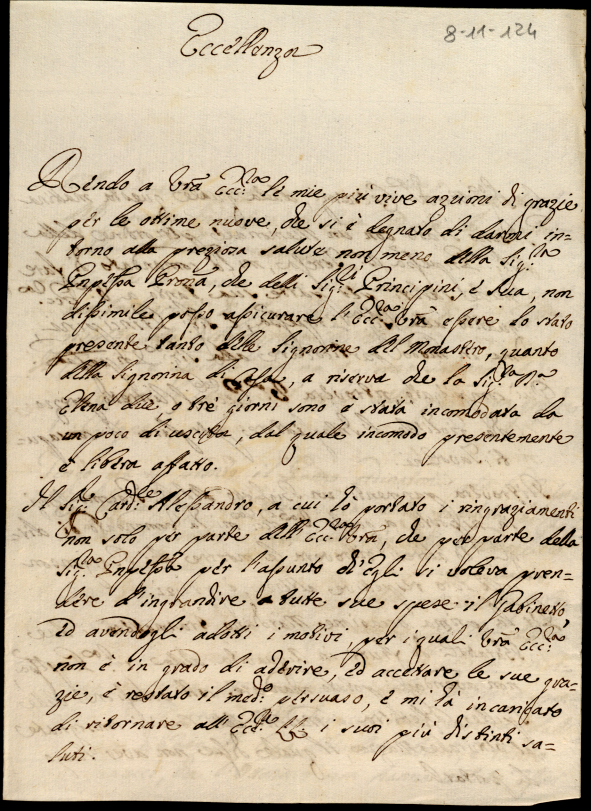 8-11-124
Eccellenza
Rendo a Vrã Ecc:za le mie più vive azzioni di grazie
per le ottime nuove, che si è degnato di darmi in=
torno alla preziosa salute non meno della Sig:ra
Pnpessa Prona, che delli Sig:ri Principini, e sua, non
dissimile posso assicurare l'Ecc:za Vrã essere lo stato
presente tanto delle Signorine del Monastero, quanto
della Signorina di Casa, a riserva che la Sig:ra Dna
Elena due, o tre giorni sono è stata incomodata da
un poco di uscita, dal quale incomodo presentemente
è libera affatto.
Il Sig: Card:le Alessandro, a cui hò portato i ringraziamenti
non solo per parte dell'Ecc:za Vrã, che per parte della
Sig:ra Pnpessa per l'assunto ch'Egli si voleva pren=
dere d'ingrandire a tutte sue spese il Gabinetto
ed avendogli adotti i motivi, per i quali Vrã Ecc:za
non è in grado di aderire, ed accettare le sue gra=
zie, è restato il med:o persuaso, e mi hà incaricato
di ritornare all'Ecc:ze LL i suoi più distinti sa=
luti.